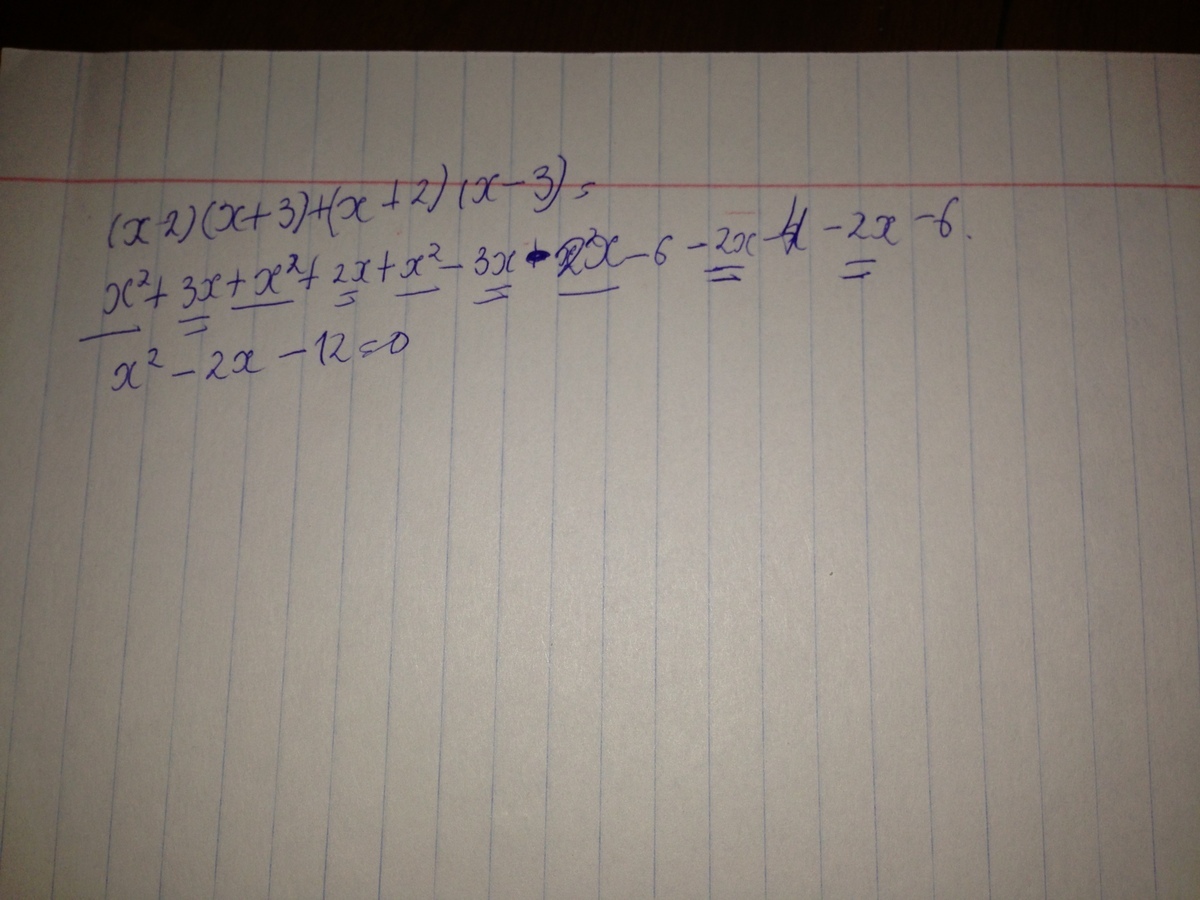 (x-2)(x+3)+(x+2)(x-3)=
x²+3x+x²+2x+x²-3x - x²x-6-2x-4-2x-6.
x²-2x-12=0